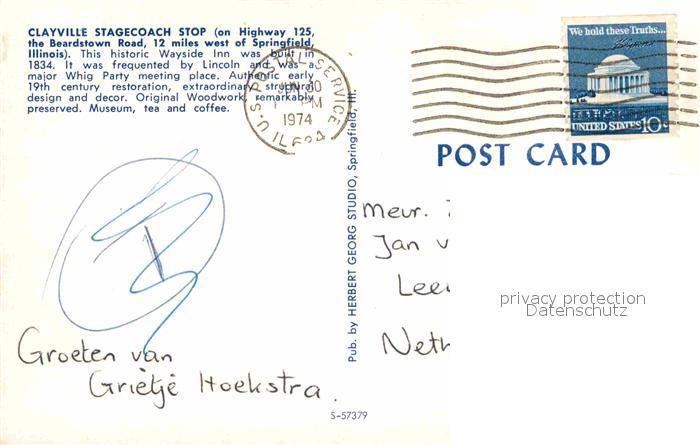 CLAYVILLE STAGECOACH STOP (on Highway 125,
the Beardstown Road, 12 miles west of Springfield,
Illinois). This historic Wayside Inn was built in
1834. It was frequented by Lincoln and was a
major Whig Party meeting place. Authentic early
19th century restoration, extraordinary structural
design and decor. Original Woodwork remarkably
preserved. Museum, tea and coffee.
U.S. POSTAL SERVICE
PM
1974
IL
We hold these Truths...
UNITED STATES 10c
POST CARD
Pub. by HERBERT GEORG STUDIO, Springfield, Ill.
Mevr.
Jan v
Lee
Neth
privacy protection
Datenschutz
Groeten van
Grietje Hoekstra.
S-57379